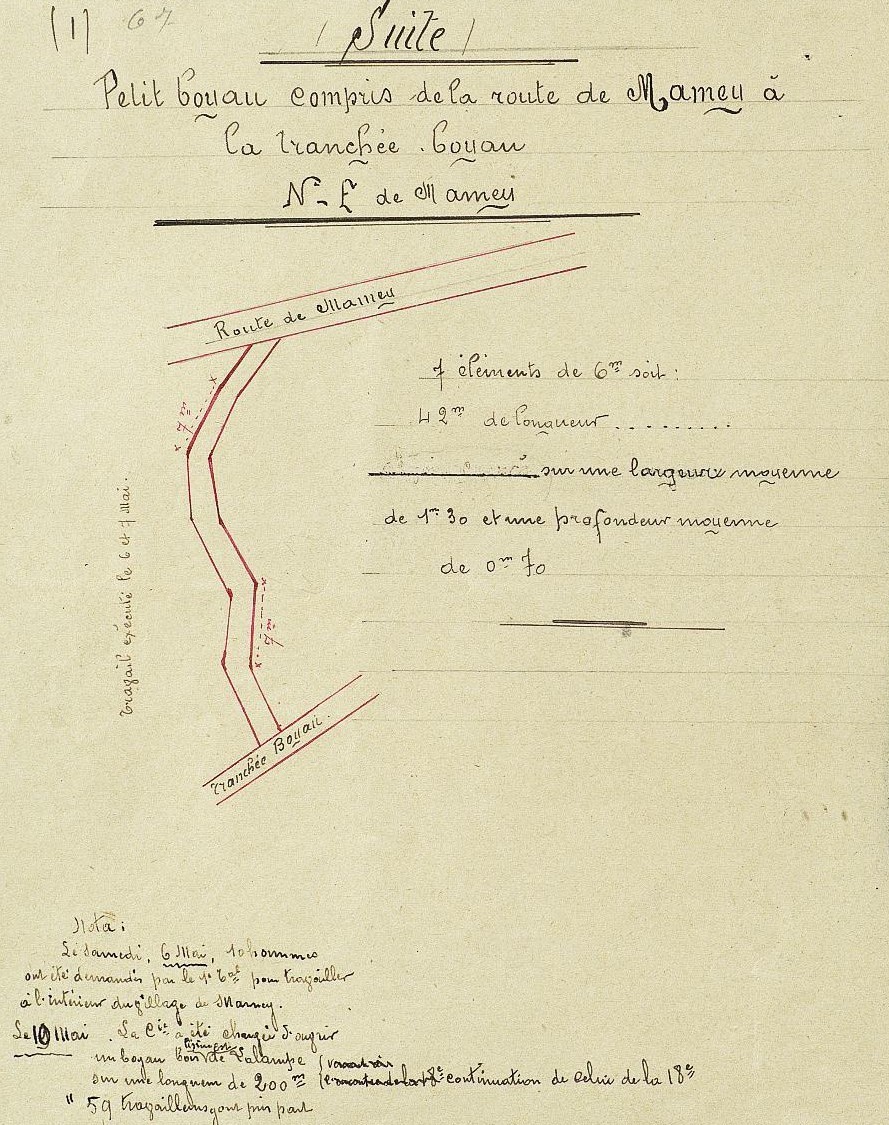 (1) 67
(Suite)
Petit boyau compris de la route de Mamey à
la tranchée boyau
N-E de Mamey
Route de Mamey
7 m
7 éléments de 6m soit :
42m de longueur .........
sur une largeur moyenne
de 1m 30 et une profondeur moyenne
de 0m 70
Travail exécuté le 6 et 7 Mai.
7 m
Tranchée Boyau.
Nota :
Le Samedi, 6 Mai, 10 hommes
ont été demandés par le 1er Bat pour travailler
à l'intérieur du village de Mamey.
Le 10 Mai. La Cie a été chargée d'ouvrir
un boyau de
sur une longueur de 200m continuation de celui de la 18e
" 59 travailleurs y ont pris part